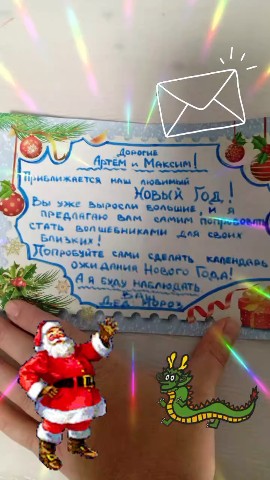 Дорогие
Артём и Максим!
Приближается наш любимый
Новый Год!
Вы уже выросли большие, и я
предлагаю вам самим попробовать
стать волшебниками для своих
близких!
Попробуйте сами сделать календарь
ожидания Нового Года!
А я буду наблюдать
Дед Мороз